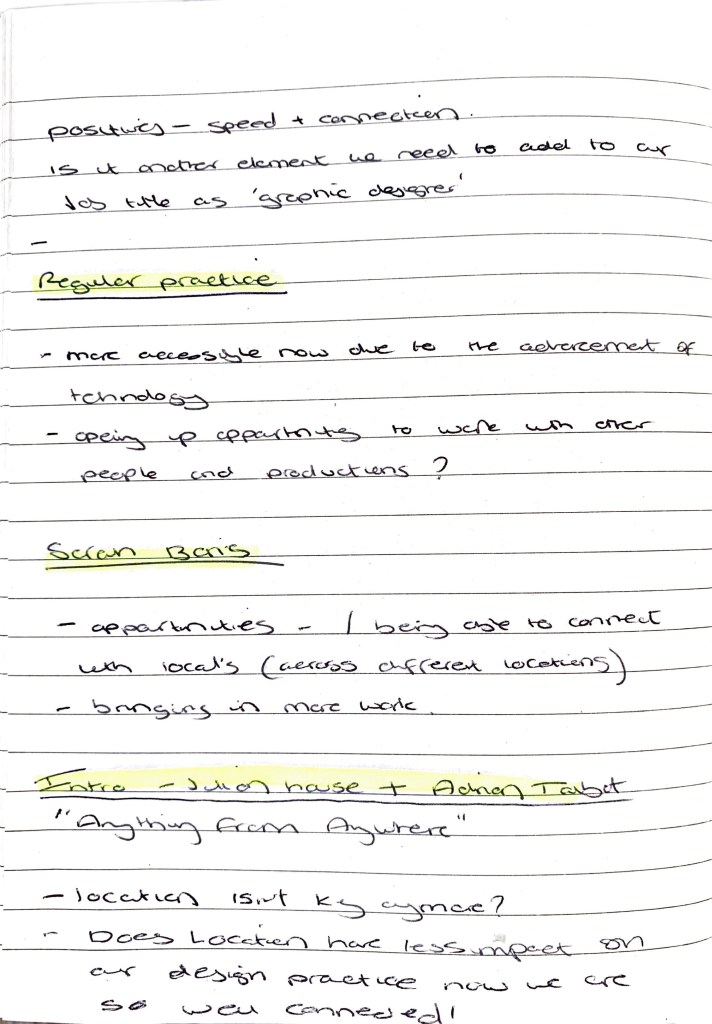 positives - speed + connection.
Is it another element we need to add to our
Job title as 'graphic designer'
-
Regular practice
- more accessible now due to the advancement of
technology
- opeing up opportunities to work with other
people and productions?
Saran Baris
- opportunities - / being able to connect
with local's (across different locations)
- bringing in more work.
Intro - Julian house + Adrian Talbot
"Anything from Anywhere"
- location isn't key anymore?
- Does Location have less impact on
our design practice now we are
so well connected!